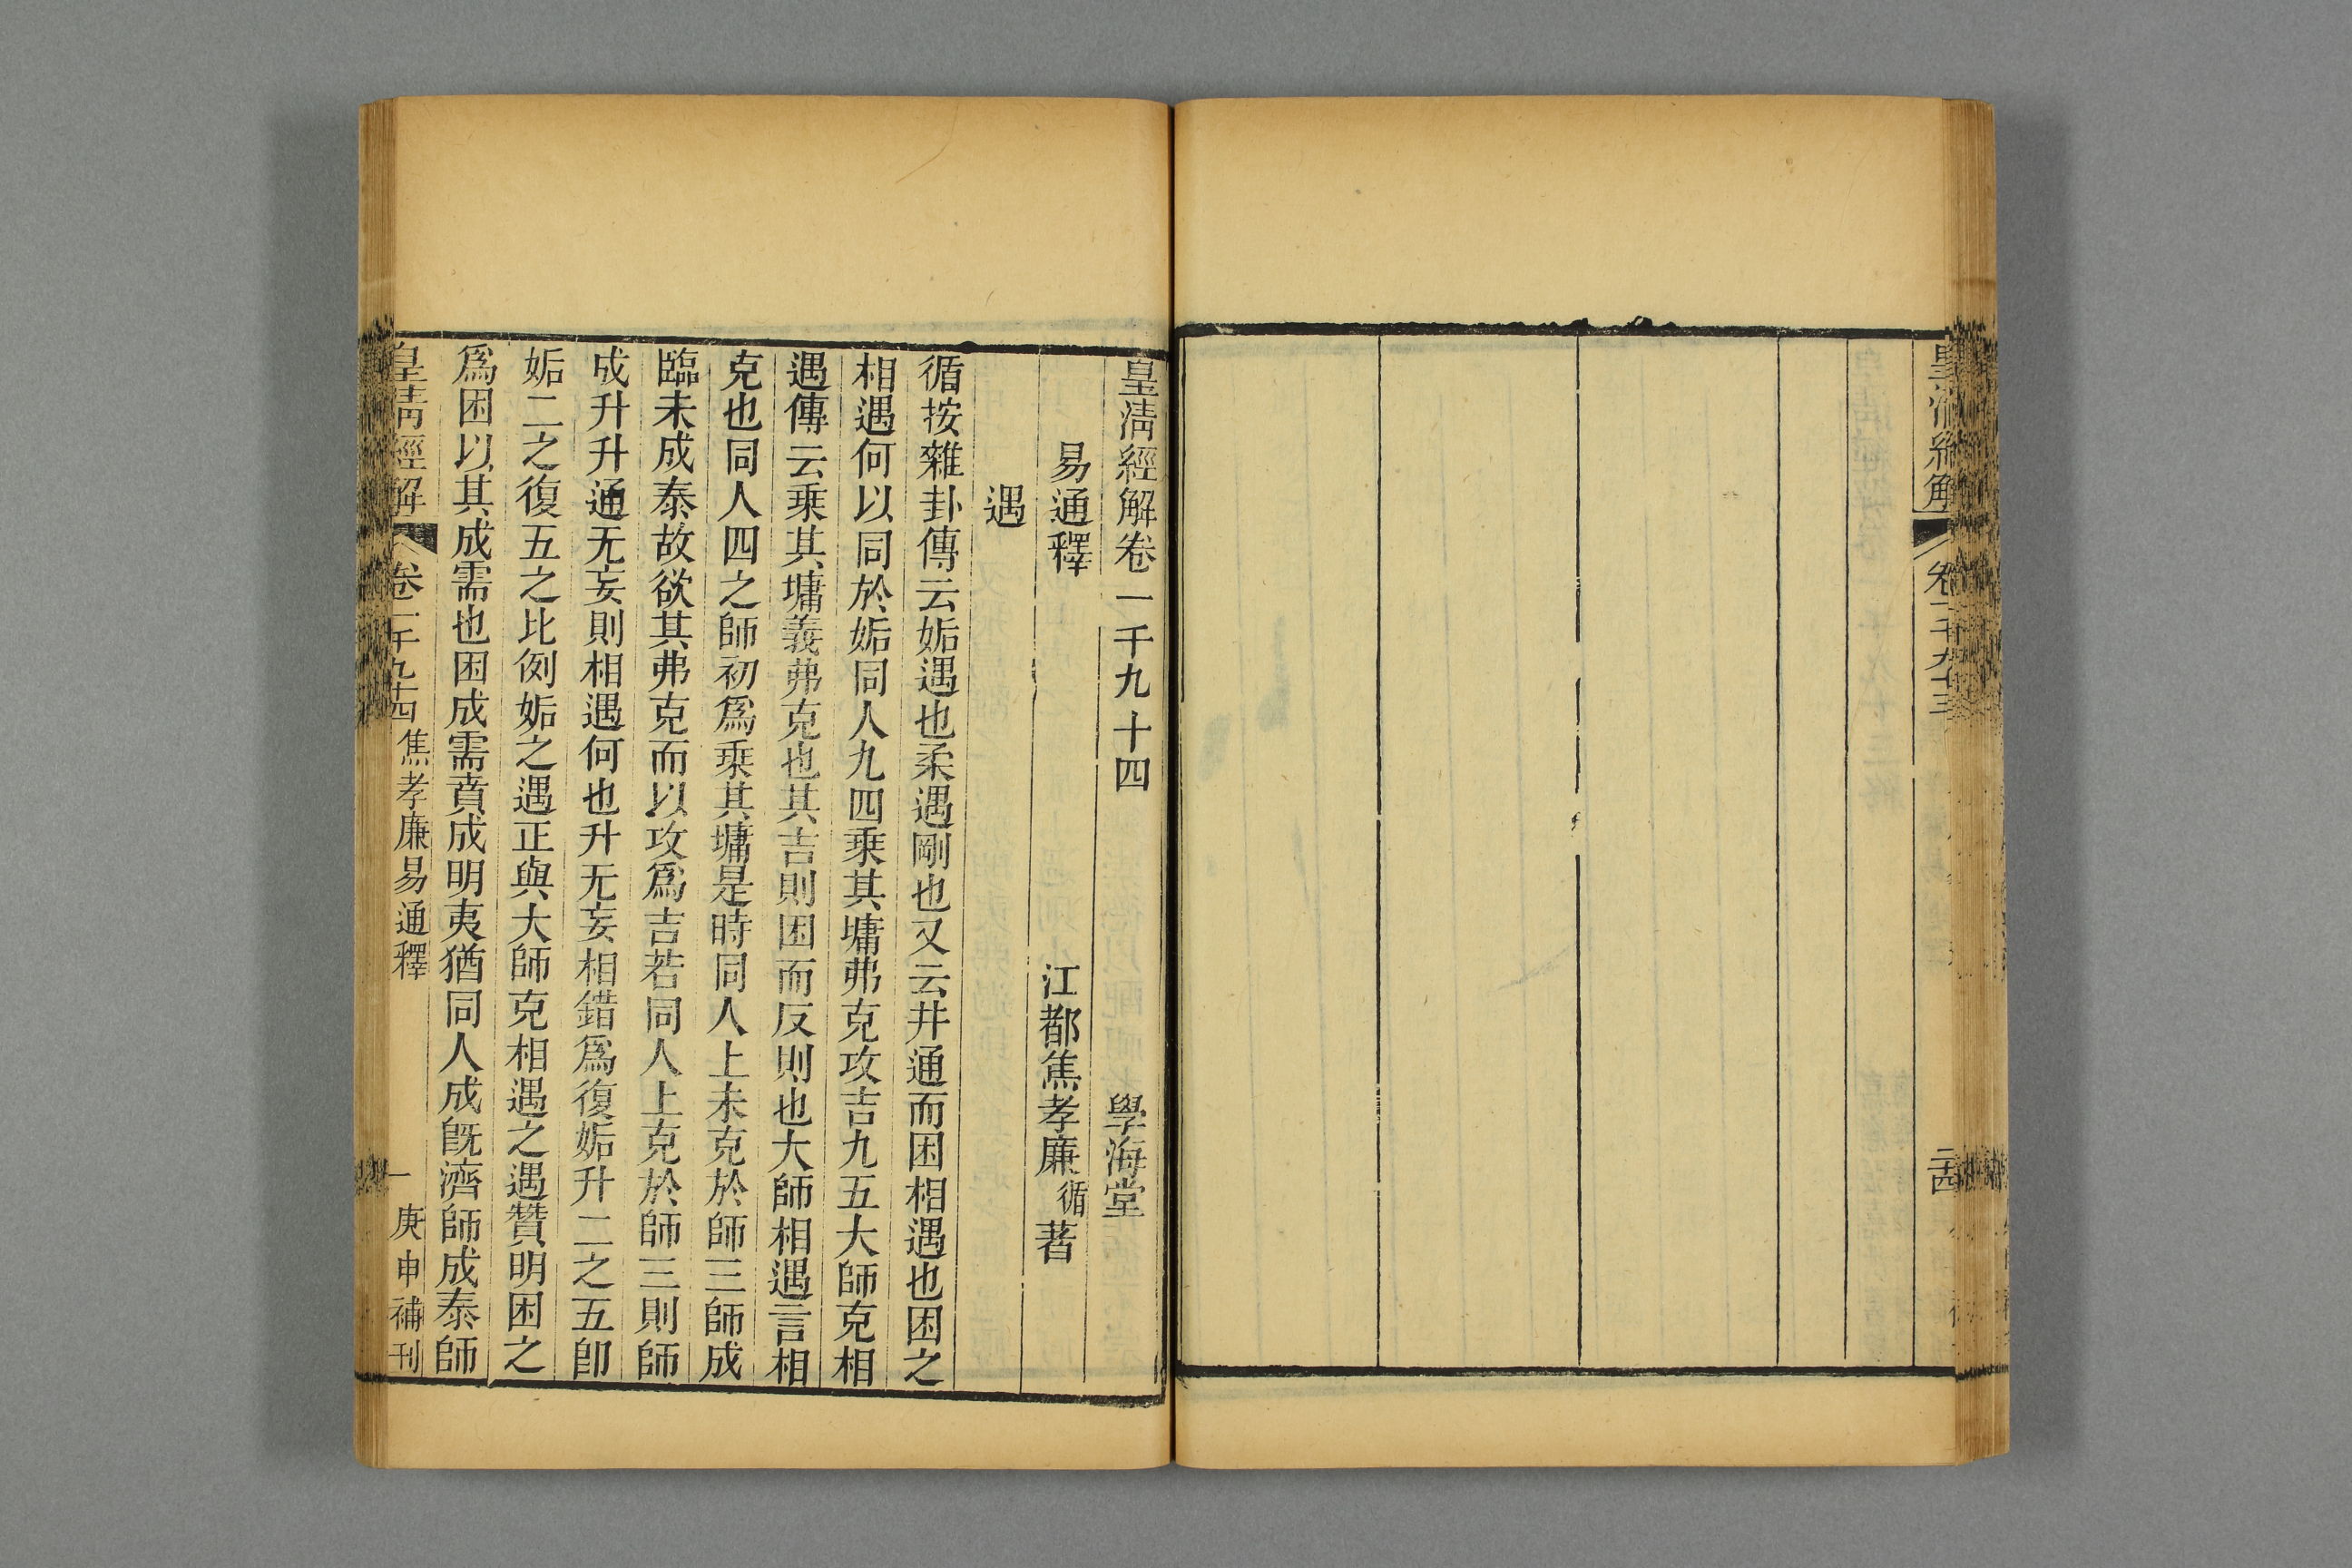 皇清經解
皇清經解卷一千九十四
學海堂
易通釋
江都焦孝廉循著
遇
循按雜卦傳云姤遇也柔遇剛也又云井通而困相遇也困之
相遇何以同於姤同人九四乗其墉弗克攻吉九五大師克相
遇傳云乗其墉義弗克也其吉則困而反則也大師相遇言相
克也同人四之師初爲乗其墉是時同人上未克於師三師成
臨未成泰故欲其弗克而以攻爲吉若同人上克於師三則師
成升升通无妄則相遇何也升无妄相錯爲復姤升二之五卽
姤二之復五之比例姤之遇正與大師克相遇之遇贊明困之
爲困以其成需也困成需賁成明夷猶同人成旣濟師成泰師
皇清經解
卷一千九十四
焦孝廉易通釋
一
庚申補刊